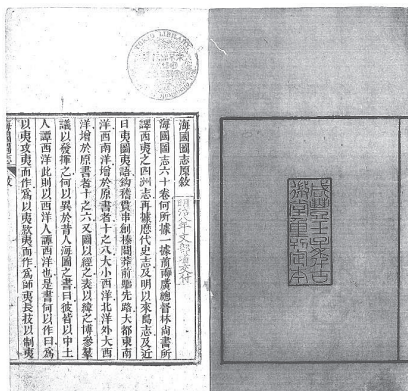 咸豐壬子年古
微堂重刊定本
TOKIO LIBRARY
海國圖志原敘
明治八年文部省交付
海國圖志六十卷何所據一據前兩廣總督林尚書所
譯西夷之四洲志再據歷代史志及明以來島志及近
日夷圖夷語鈎稽貫串創榛闢莽前驅先路大都東南
洋西南洋增於原書者十之八大小西洋北洋外大西
洋增於原書者十之六又圖以經之表以緯之博參羣
議以發揮之何以異於昔人海圖之書曰彼皆以中土
人譚西洋此則以西洋人譚西洋也是書何以作曰爲
以夷攻夷而作爲以夷款夷而作爲師夷長技以制夷
海國圖志